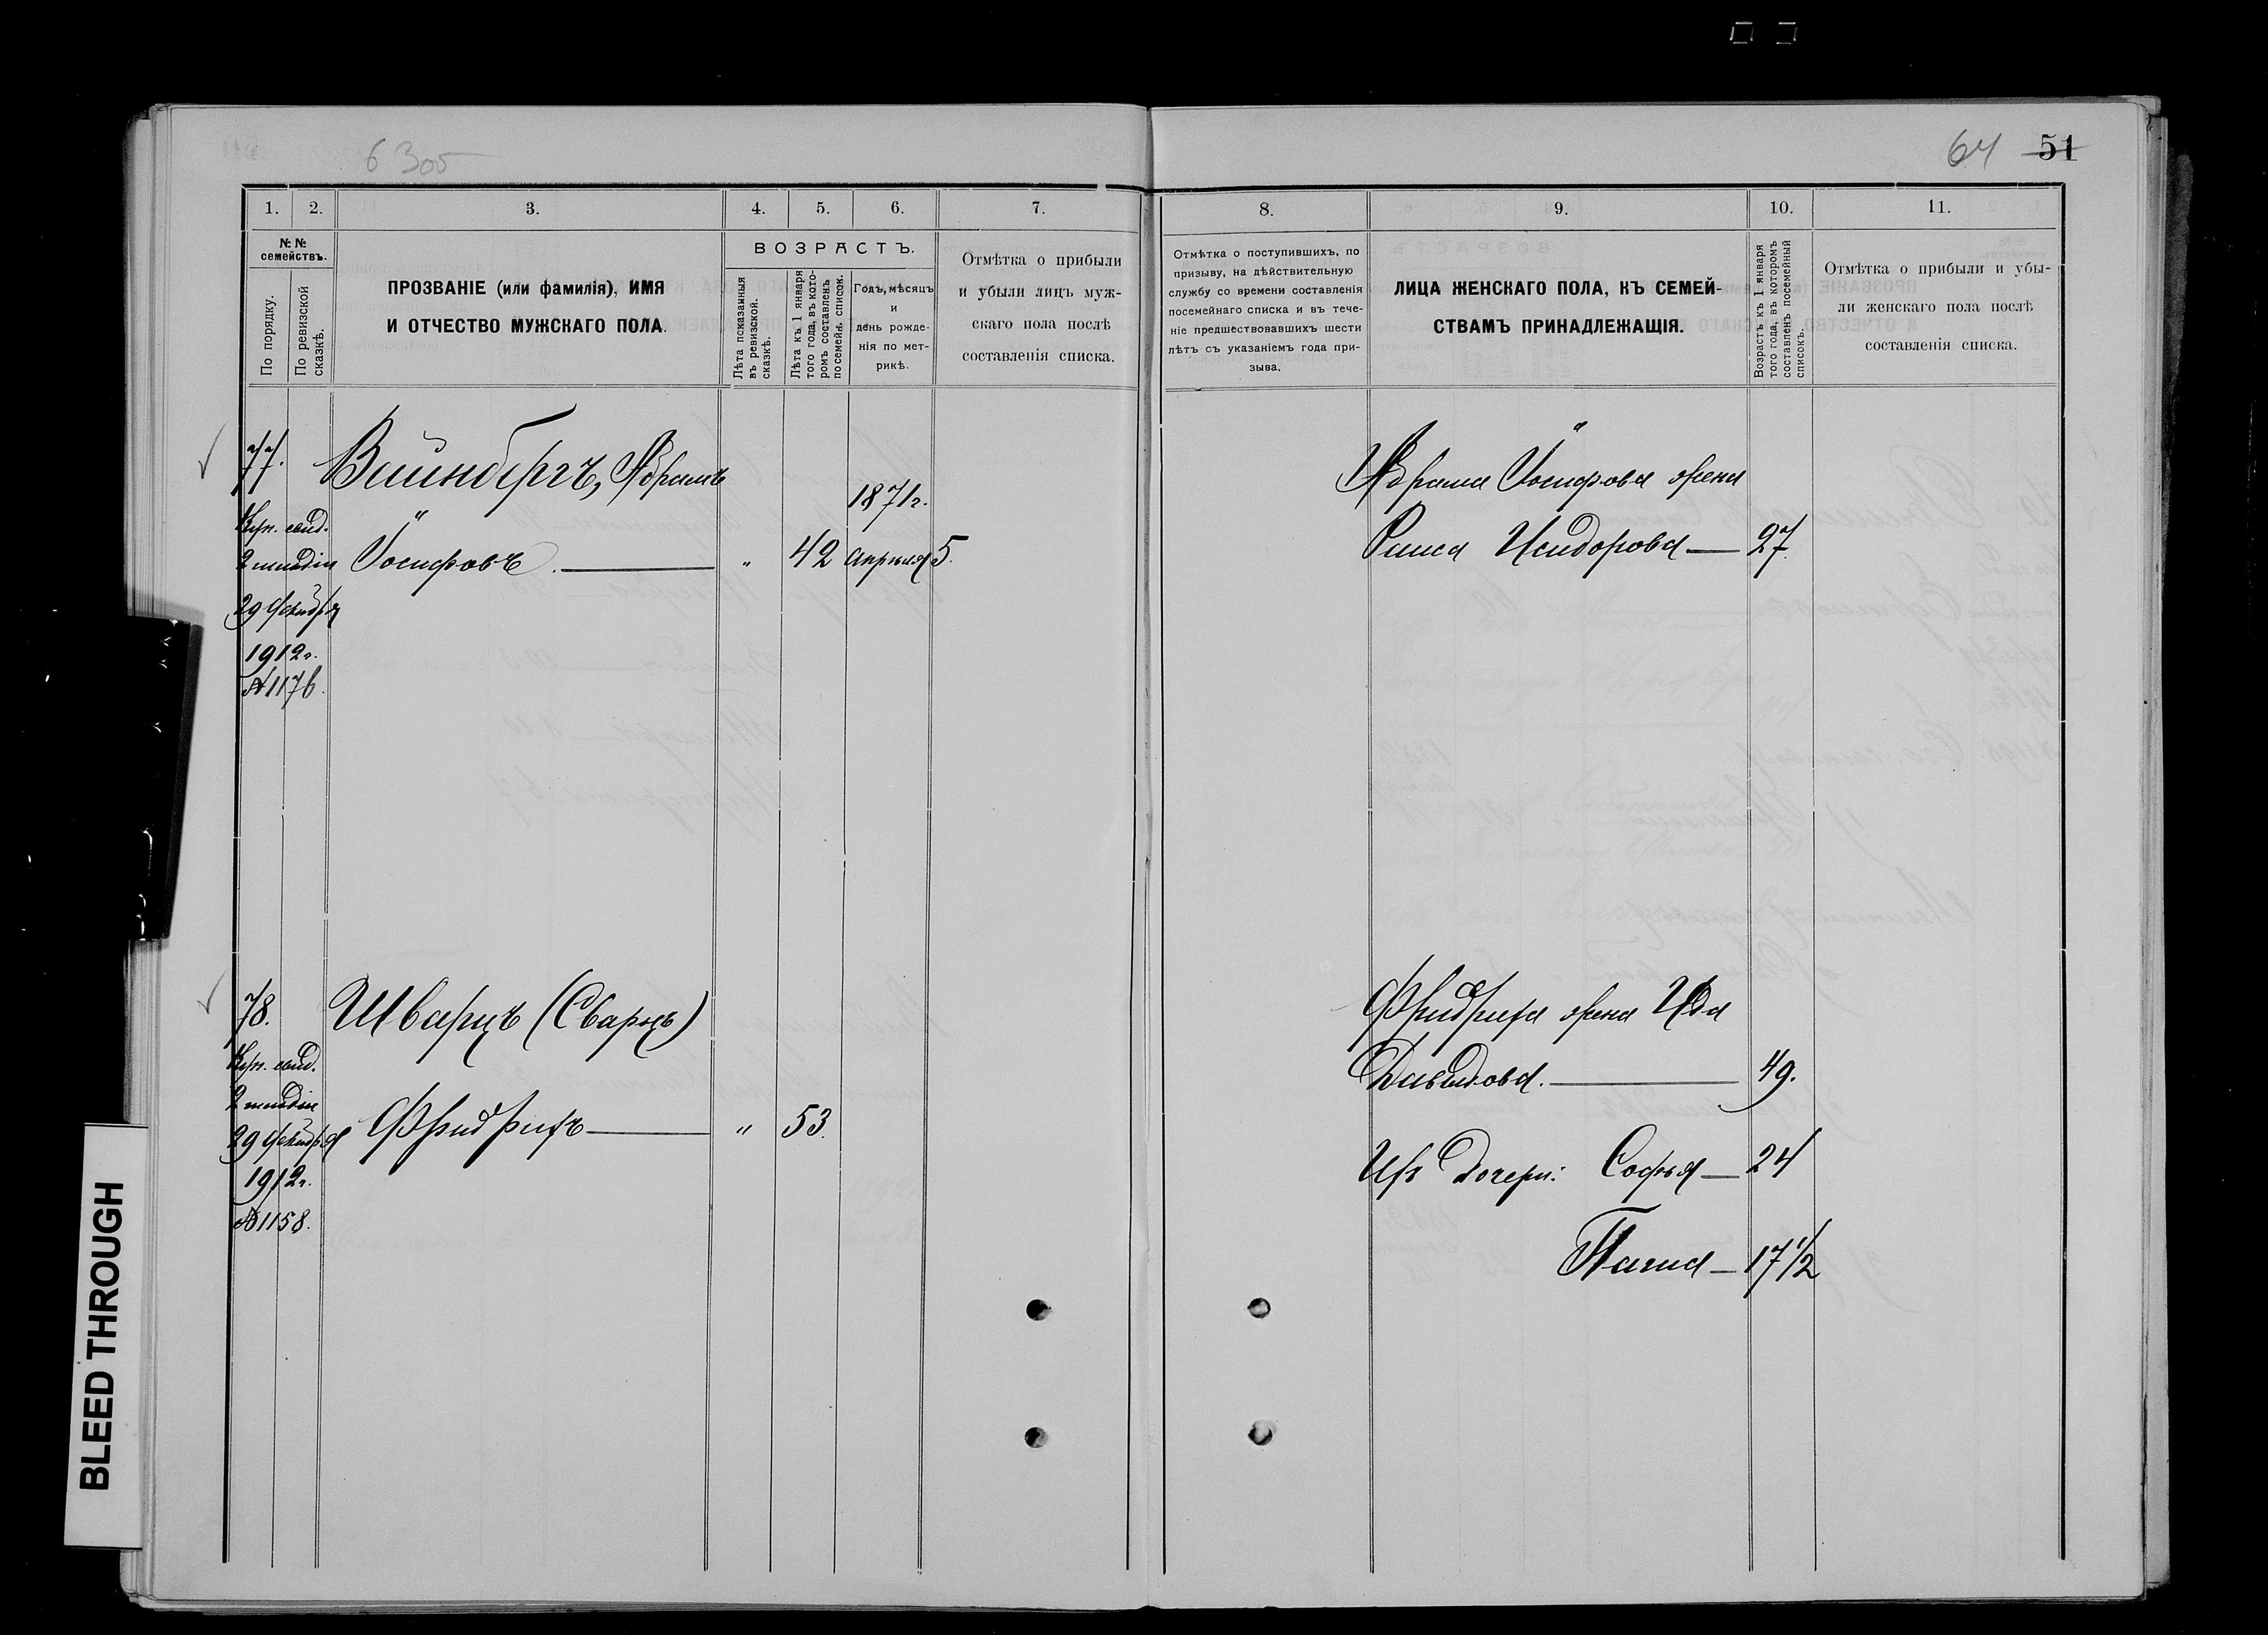 6 305
64 51
1. 2. 3. 4. 5. 6. 7.
№ №
семействъ.
По порядку.
По ревизской
сказкѣ.
ПРОЗВАНІЕ (или фамилія), ИМЯ
И ОТЧЕСТВО МУЖСКАГО ПОЛА.
ВОЗРАСТЪ.
Лѣта показанныя
въ ревизской.
сказкѣ.
Лѣта къ 1 января
того года, въ кото-
ромъ составленъ
посемейн. список.
Годъ, мѣсяцъ
и
день рожде-
нія по мет-
рикѣ.
Отмѣтка о прибыли
и убыли лицъ муж-
скаго пола послѣ
составленія списка.
77. Вайнбергъ, Абрамъ
1871 г.
Куп. свид.
2 гильдіи Іосифовъ. — " 42 апрѣля 5.
29 Декабря
1912 г.
№ 1176.
78. Шварцъ (Сварцъ)
Куп. свид.
2 гильдіи
29 Декабря Фридрихъ — " 53.
1912 г.
№ 1158.
8. 9. 10. 11.
Отмѣтка о поступившихъ, по
призыву, на дѣйствительную
службу со времени составленія
посемейнаго списка и въ тече-
ніе предшествовавшихъ шести
лѣтъ съ указаніемъ года при-
зыва.
ЛИЦА ЖЕНСКАГО ПОЛА, КЪ СЕМЕЙ-
СТВАМЪ ПРИНАДЛЕЖАЩІЯ.
Возрастъ къ 1 января
того года, въ которомъ
составленъ посемейный
списокъ.
Отмѣтка о прибыли и убы-
ли женскаго пола послѣ
составленія списка.
Абрама Іосифова жена
Раиса Исидорова — 27.
Фридриха жена Ида
Давидова. — 49.
Ихъ дочери: Софья — 24
— 17 1/2
BLEED THROUGH